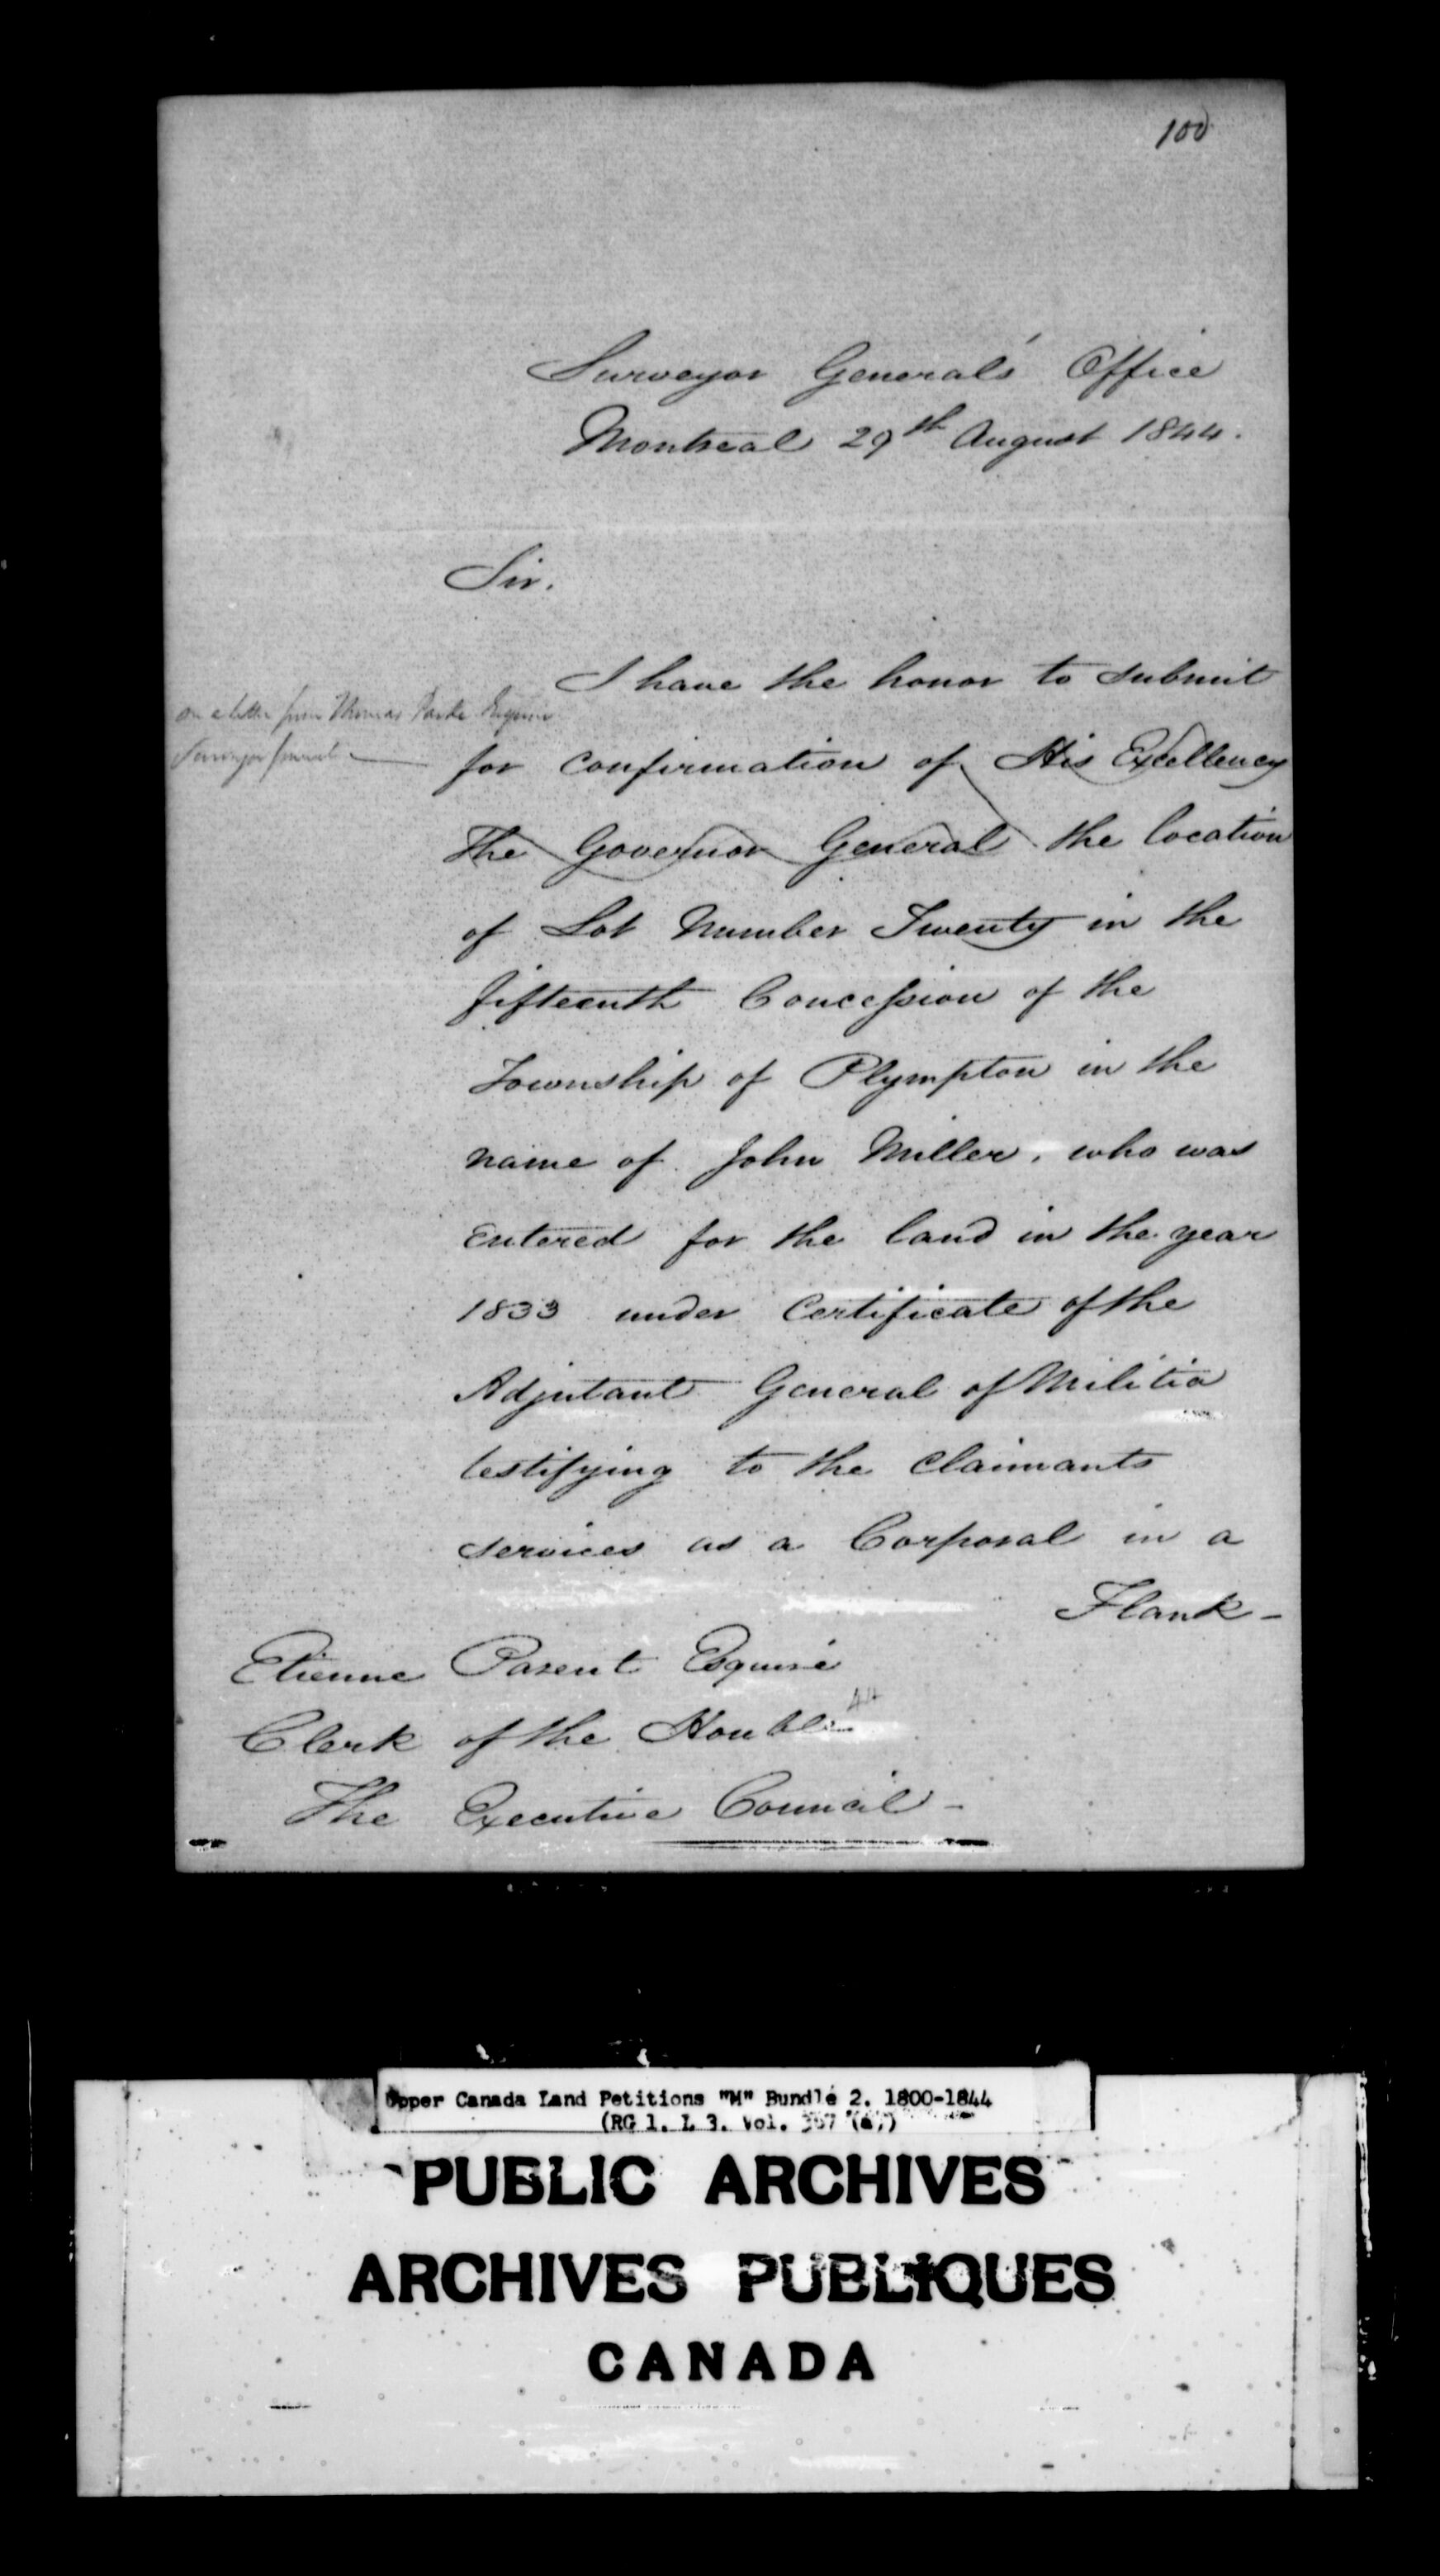 100
Surveyor General's Office
Montreal 29th August 1844.
Sir.
I have the honor to submit
on a letter from Thomas Parke Esquire
Surveyor General
for confirmation of His Excellency
The Governor General the location
of Lot Number Twenty in the
fifteenth Concession of the
Township of Plympton in the
name of John Miller, who was
entered for the land in the year
1833 under Certificate of the
Adjutant General of Militia
testifying to the Claimants
services as a Corporal in a
Flank-
Etienne Parent Esquire
Clerk of the Honble
The Executive Council-
Upper Canada Land Petitions "M" Bundle 2. 1800-1844
(RG 1. L 3. Vol. 367 (a))
PUBLIC ARCHIVES
ARCHIVES PUBLIQUES
CANADA